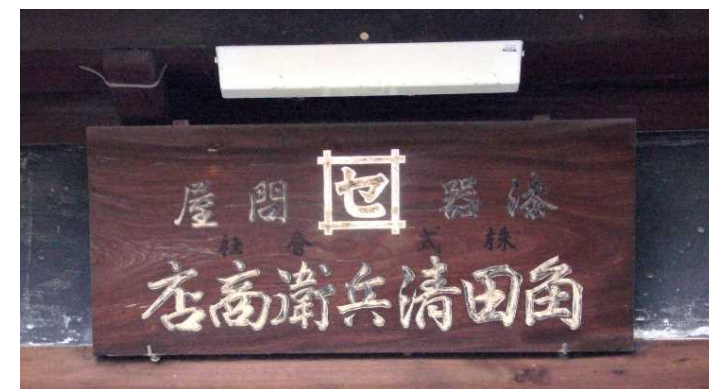 漆器 セ 問屋
株式會社
角田清兵衛商店